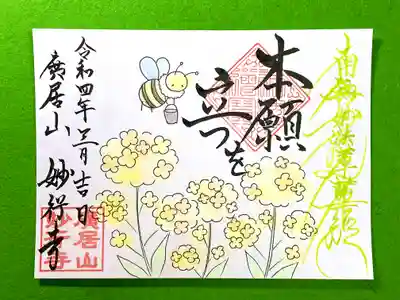 南無妙法蓮華経
本願を
立つ
令和四年三月吉日
廣居山
廣居山